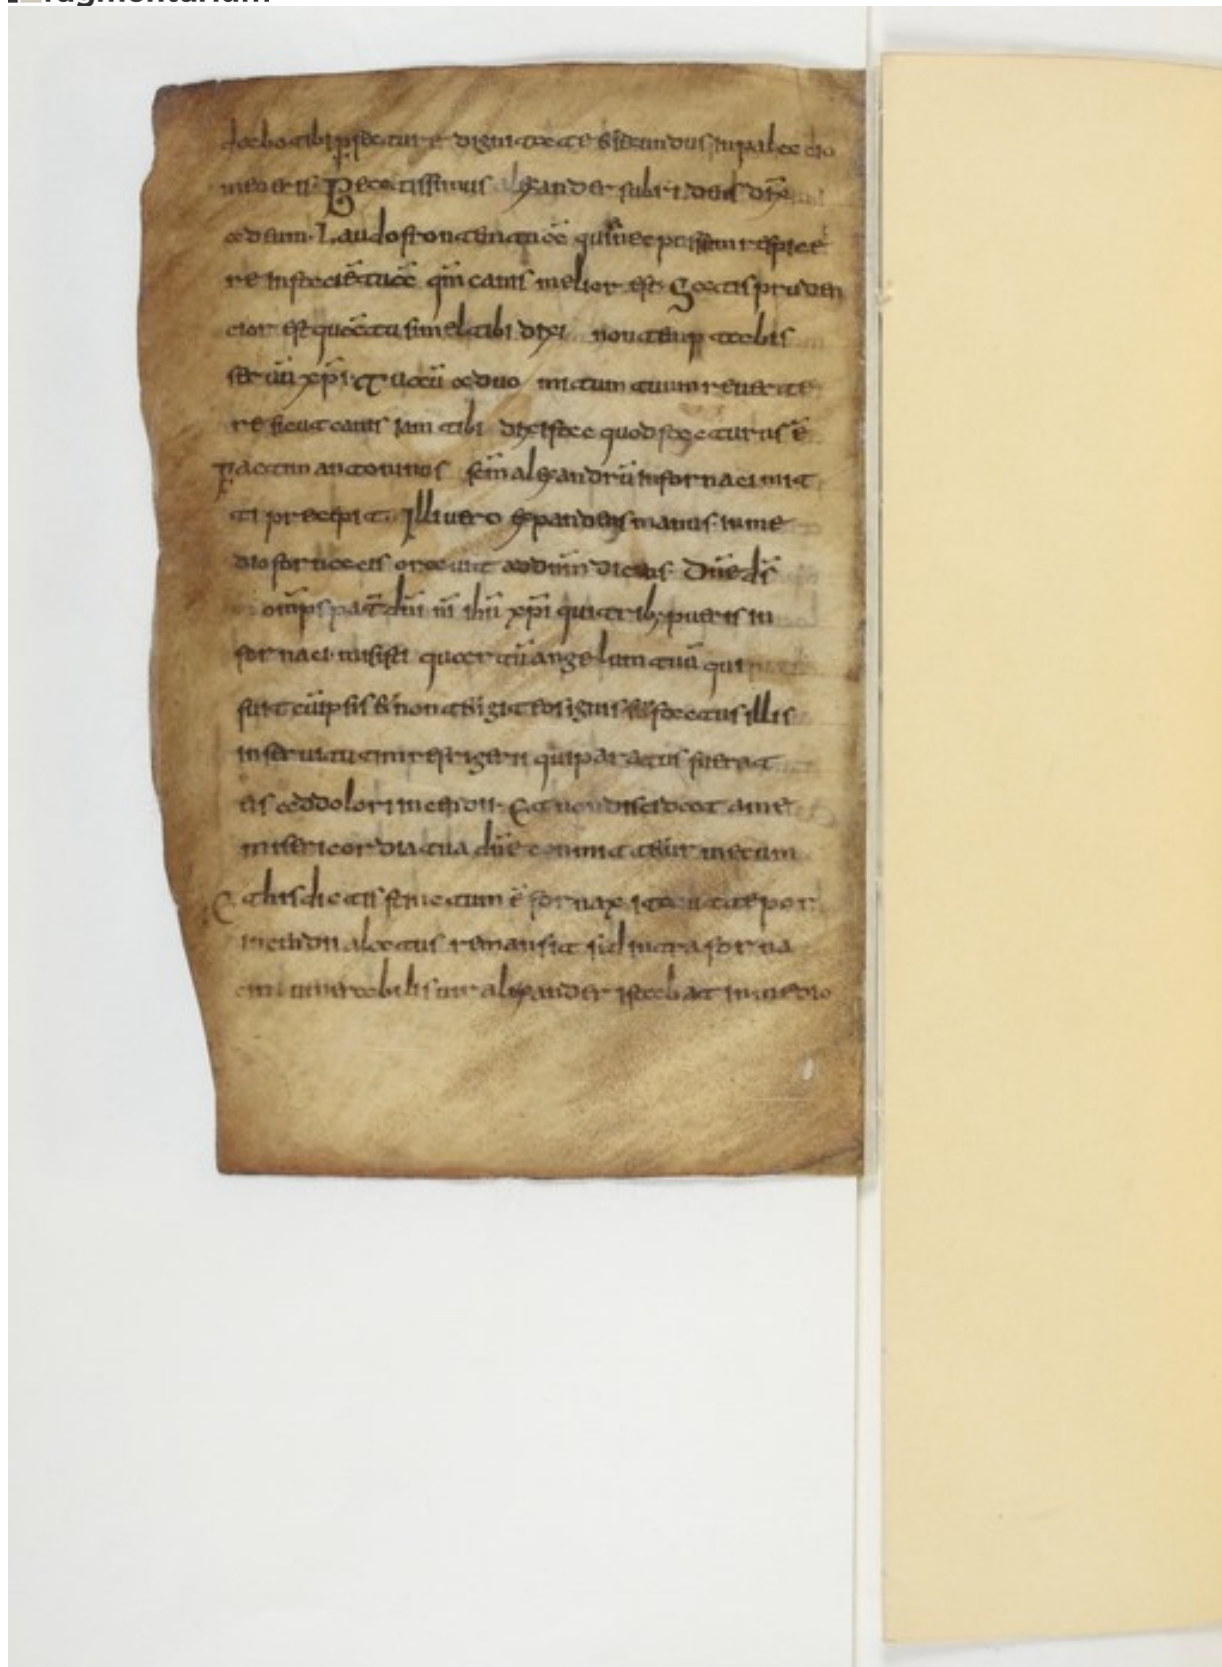 dabo tibi p̄fecture dignitate & secundus in palacio
meo eris. Beatissimus alexander subridens dix̄
ad eum. Laudo frontem tuā quia nec possum respice
re in faciē tuā qm̄ canis melior est. Satis pruden
cior est quā tu simel tibi dixi non temptabis
seruū xp̄i. Tu aū ad uomitum tuum reuerte
re sicut canis iam tibi dixi fac quod facturus ē
Factum antoninus sc̄m alexandrū in fornaci mit
ti precipit. Ille uero expandens manus in me
dio fornacis orauit ad dn̄m dicens. Dn̄e ds̄
om̄ps pat̄ dn̄i n̄i ihū xp̄i qui trib; pueris in
fornaci misisti quartū angelum tuū qui
fuit cū ipsis & non tetigit eos ignis sed factus illis
in seruitutem refrigerii qui paratus fuerat
eis ad dolorem incendii. Et non discedat a me
misericordia tua dn̄e commitetur mecum
Et his dictis sene tum ē fornax ita ut tepor
incendii alatus remansit sed intra forna
cem mirabilis uir alexander stabat in medio